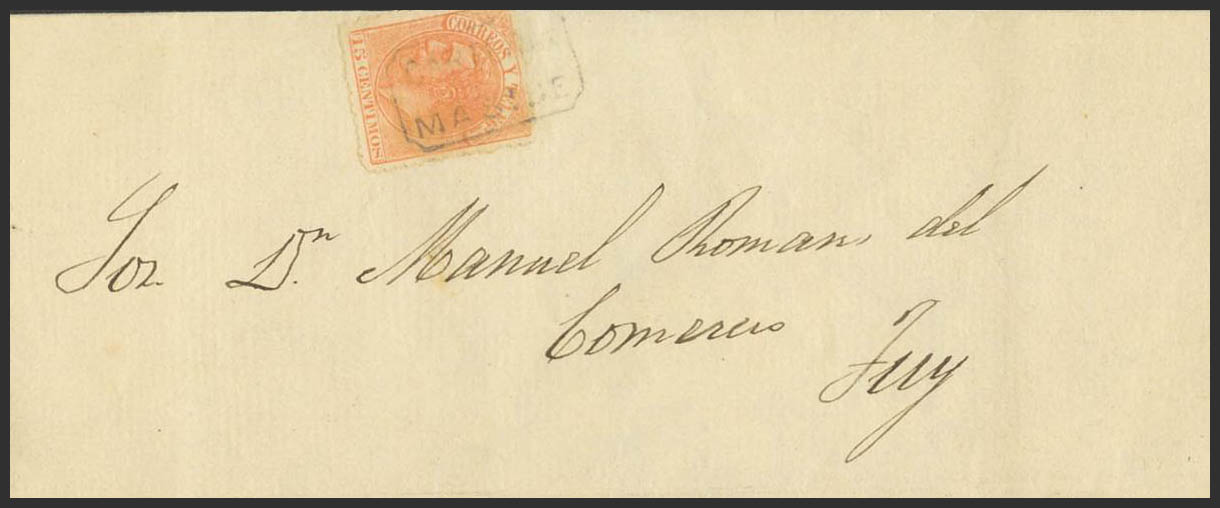 CORREOS Y
15 CENTIMOS
Sor. Dn. Manuel Roman del
Comercio
Tuy